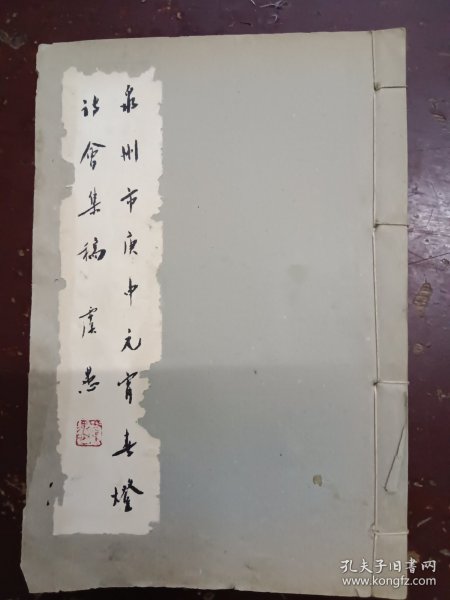 泉州市庚申元宵春燈
诗會集稿 虞愚
孔夫子旧书网
www.kongfz.com